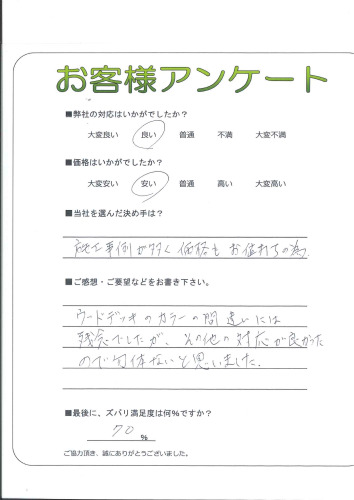 お客様アンケート
■弊社の対応はいかがでしたか？
大変良い 良い 普通 不満 大変不満
■価格はいかがでしたか？
大変安い 安い 普通 高い 大変高い
■当社を選んだ決め手は？
施工事例が多く価格もお値打ちの為
■ご感想・ご要望などをお書き下さい。
ウードデッキのカラーの間違いには
残念でしたが、その他の対応が良かった
ので勿体ないと思いました.
■最後に、ズバリ満足度は何％ですか？
70 %
ご協力頂き、誠にありがとうございました。